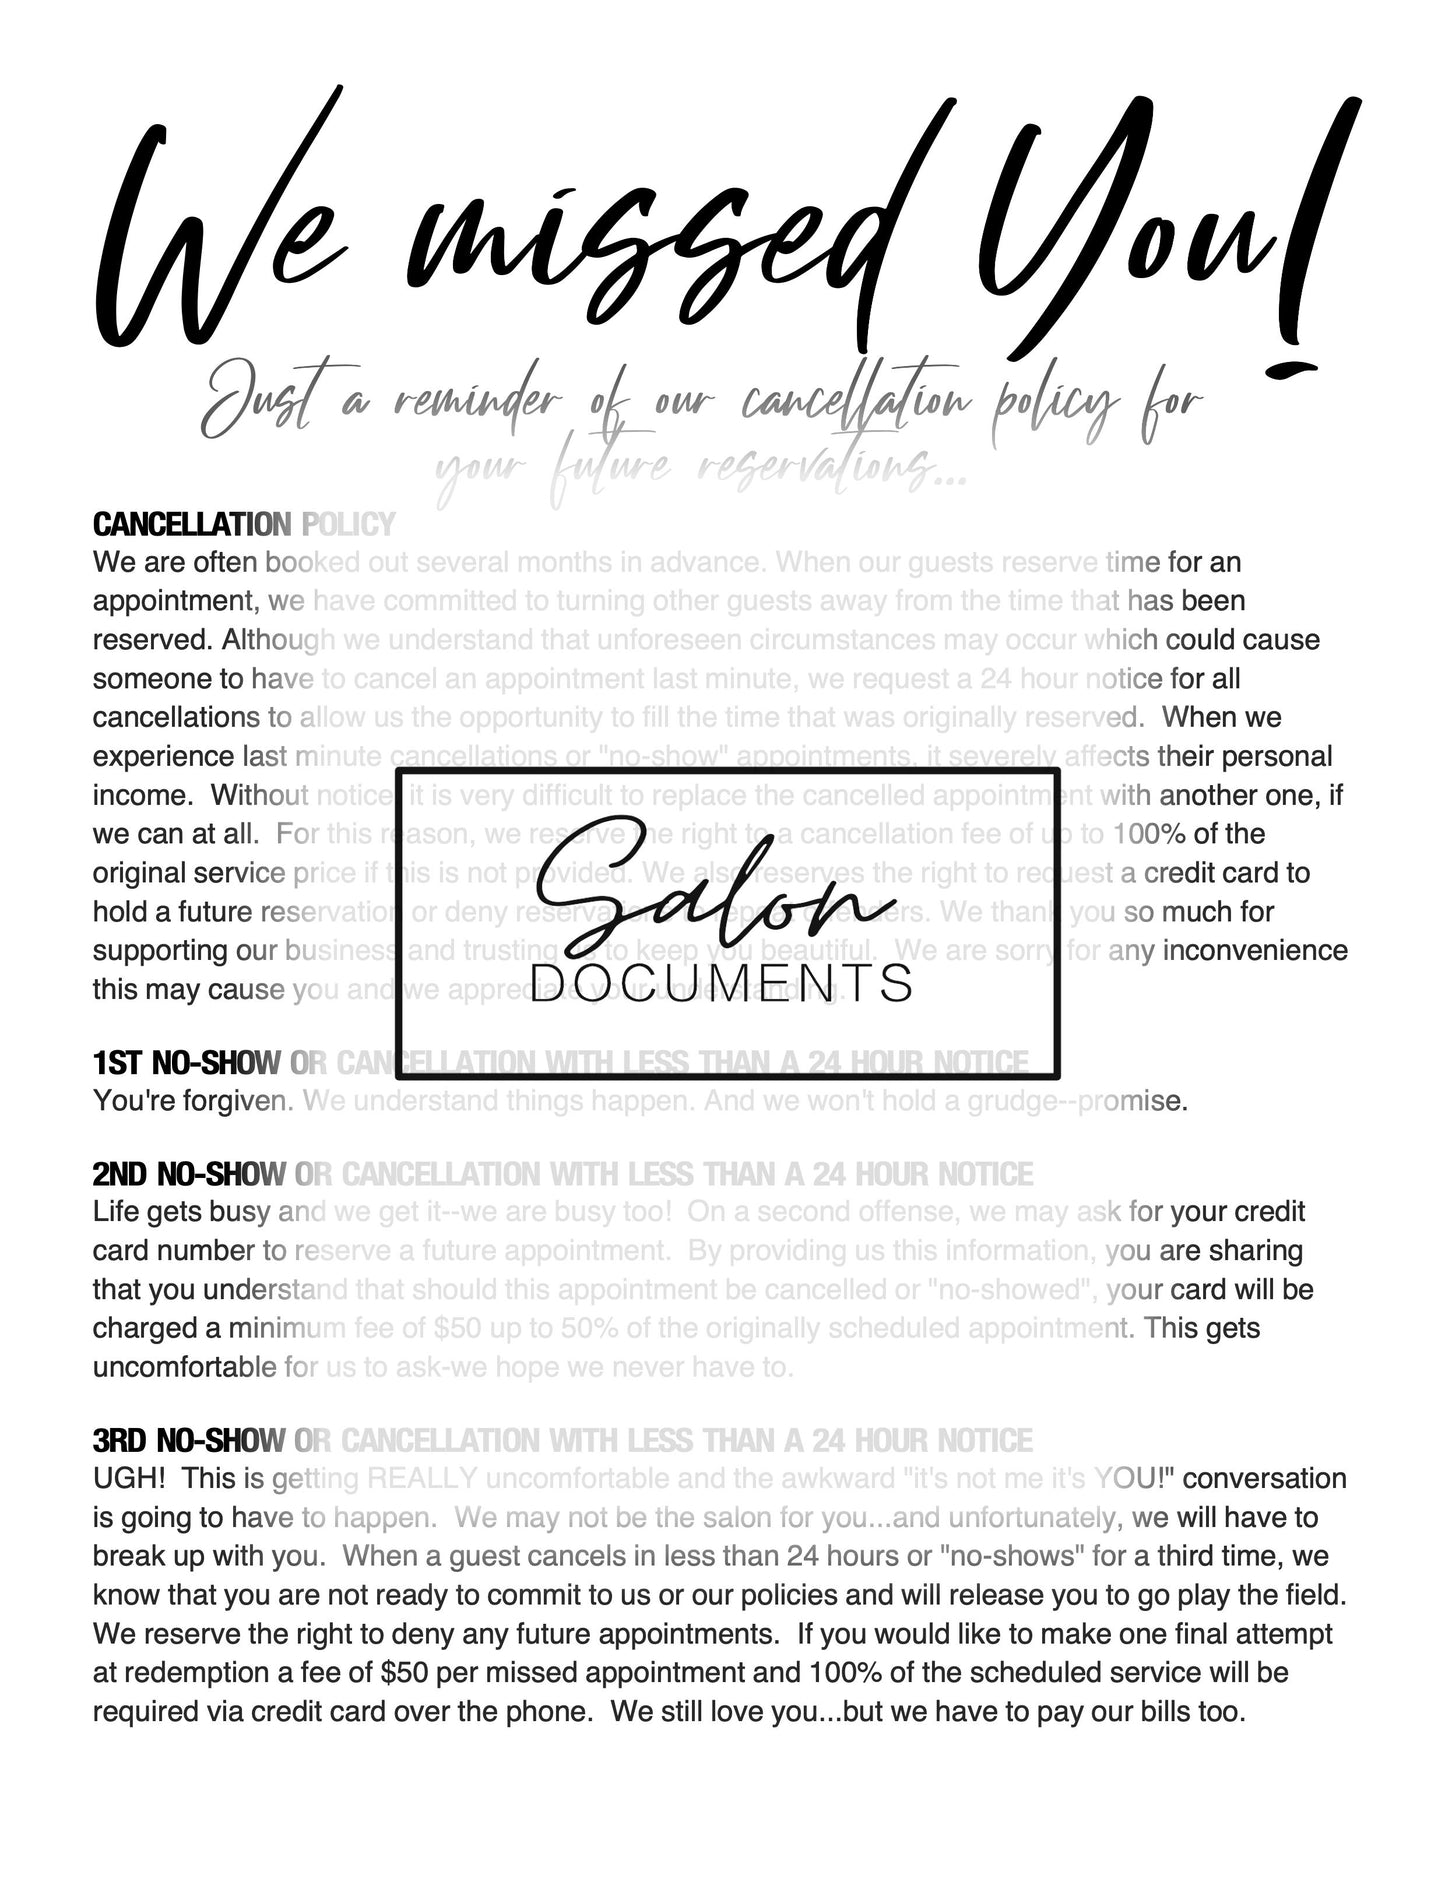 We missed You!
Just a reminder of our cancellation policy for
your future reservations...
CANCELLATION POLICY
We are often booked out several months in advance. When our guests reserve time for an
appointment, we have committed to turning other guests away from the time that has been
reserved. Although we understand that unforeseen circumstances may occur which could cause
someone to have to cancel an appointment last minute, we request a 24 hour notice for all
cancellations to allow us the opportunity to fill the time that was originally reserved.  When we
experience last minute cancellations or "no-show" appointments, it severely affects their personal
income.  Without notice, it is very difficult to replace the cancelled appointment with another one, if
we can at all.  For this reason, we reserve the right to a cancellation fee of up to 100% of the
original service price if this is not provided. We also reserves the right to request a credit card to
hold a future reservation or deny reservations to repeat offenders. We thank you so much for
supporting our business and trusting us to keep you beautiful.  We are sorry for any inconvenience
this may cause you and we appreciate your understanding.
Salon
DOCUMENTS
1ST NO-SHOW OR CANCELLATION WITH LESS THAN A 24 HOUR NOTICE
You're forgiven. We understand things happen. And we won't hold a grudge--promise.
2ND NO-SHOW OR CANCELLATION WITH LESS THAN A 24 HOUR NOTICE
Life gets busy and we get it--we are busy too!  On a second offense, we may ask for your credit
card number to reserve a future appointment.  By providing us this information, you are sharing
that you understand that should this appointment be cancelled or "no-showed", your card will be
charged a minimum fee of $50 up to 50% of the originally scheduled appointment. This gets
uncomfortable for us to ask-we hope we never have to.
3RD NO-SHOW OR CANCELLATION WITH LESS THAN A 24 HOUR NOTICE
UGH!  This is getting REALLY uncomfortable and the awkward "it's not me it's YOU!" conversation
is going to have to happen.  We may not be the salon for you...and unfortunately, we will have to
break up with you.  When a guest cancels in less than 24 hours or "no-shows" for a third time, we
know that you are not ready to commit to us or our policies and will release you to go play the field.
We reserve the right to deny any future appointments.  If you would like to make one final attempt
at redemption a fee of $50 per missed appointment and 100% of the scheduled service will be
required via credit card over the phone.  We still love you...but we have to pay our bills too.